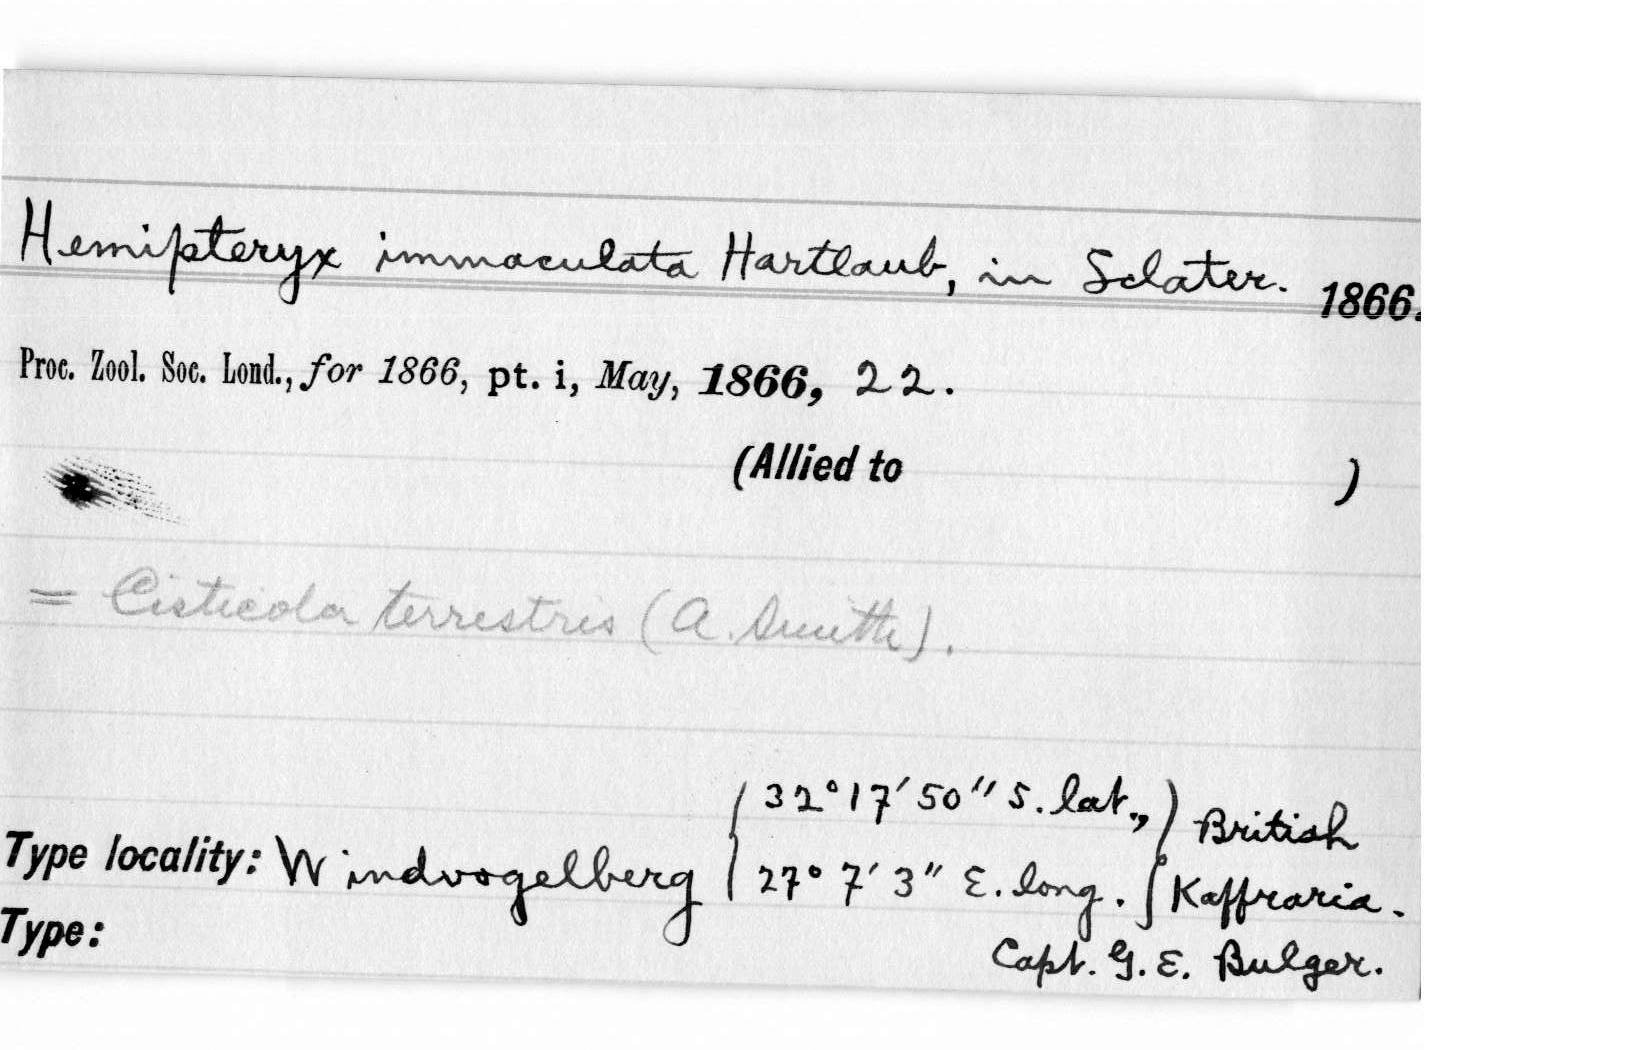 Hemipteryx immaculata Hartlaub, in Sclater. 1866.
Proc. Zool. Soc. Lond., for 1866, pt. i, May, 1866, 22.
(Allied to )
= Cisticola terrestris (A. Smith).
32° 17′ 50″ S. lat., British
Type locality: Windvogelberg 27° 7′ 3″ E. long. Kaffraria.
Type: Capt. G. E. Bulger.